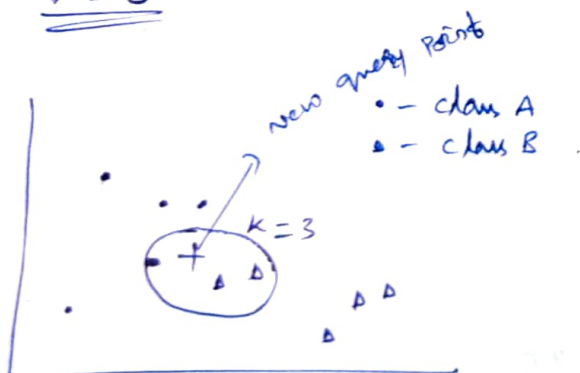 New query Point
• - class A
▵ - class B
K = 3